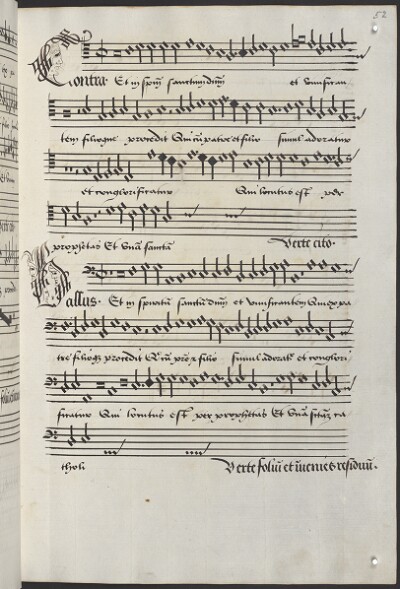 52
Contra Et in spm sanctum dnm et vivifican
tem filioque procedit Qui cu patre et filio simul adoratur
et conglorificatur Qui locutus est per
prophetas Et una sancta Verte cito
Bassus Et in spiritu sanctu dnm et vivificantem Qui ex pa
tre filioqz procedit Qui cu patre et filio simul adorat et conglori
ficatur Qui locutus est per prophetas Et una sctaz ca
tholi Verte foliu et invenies residuu.